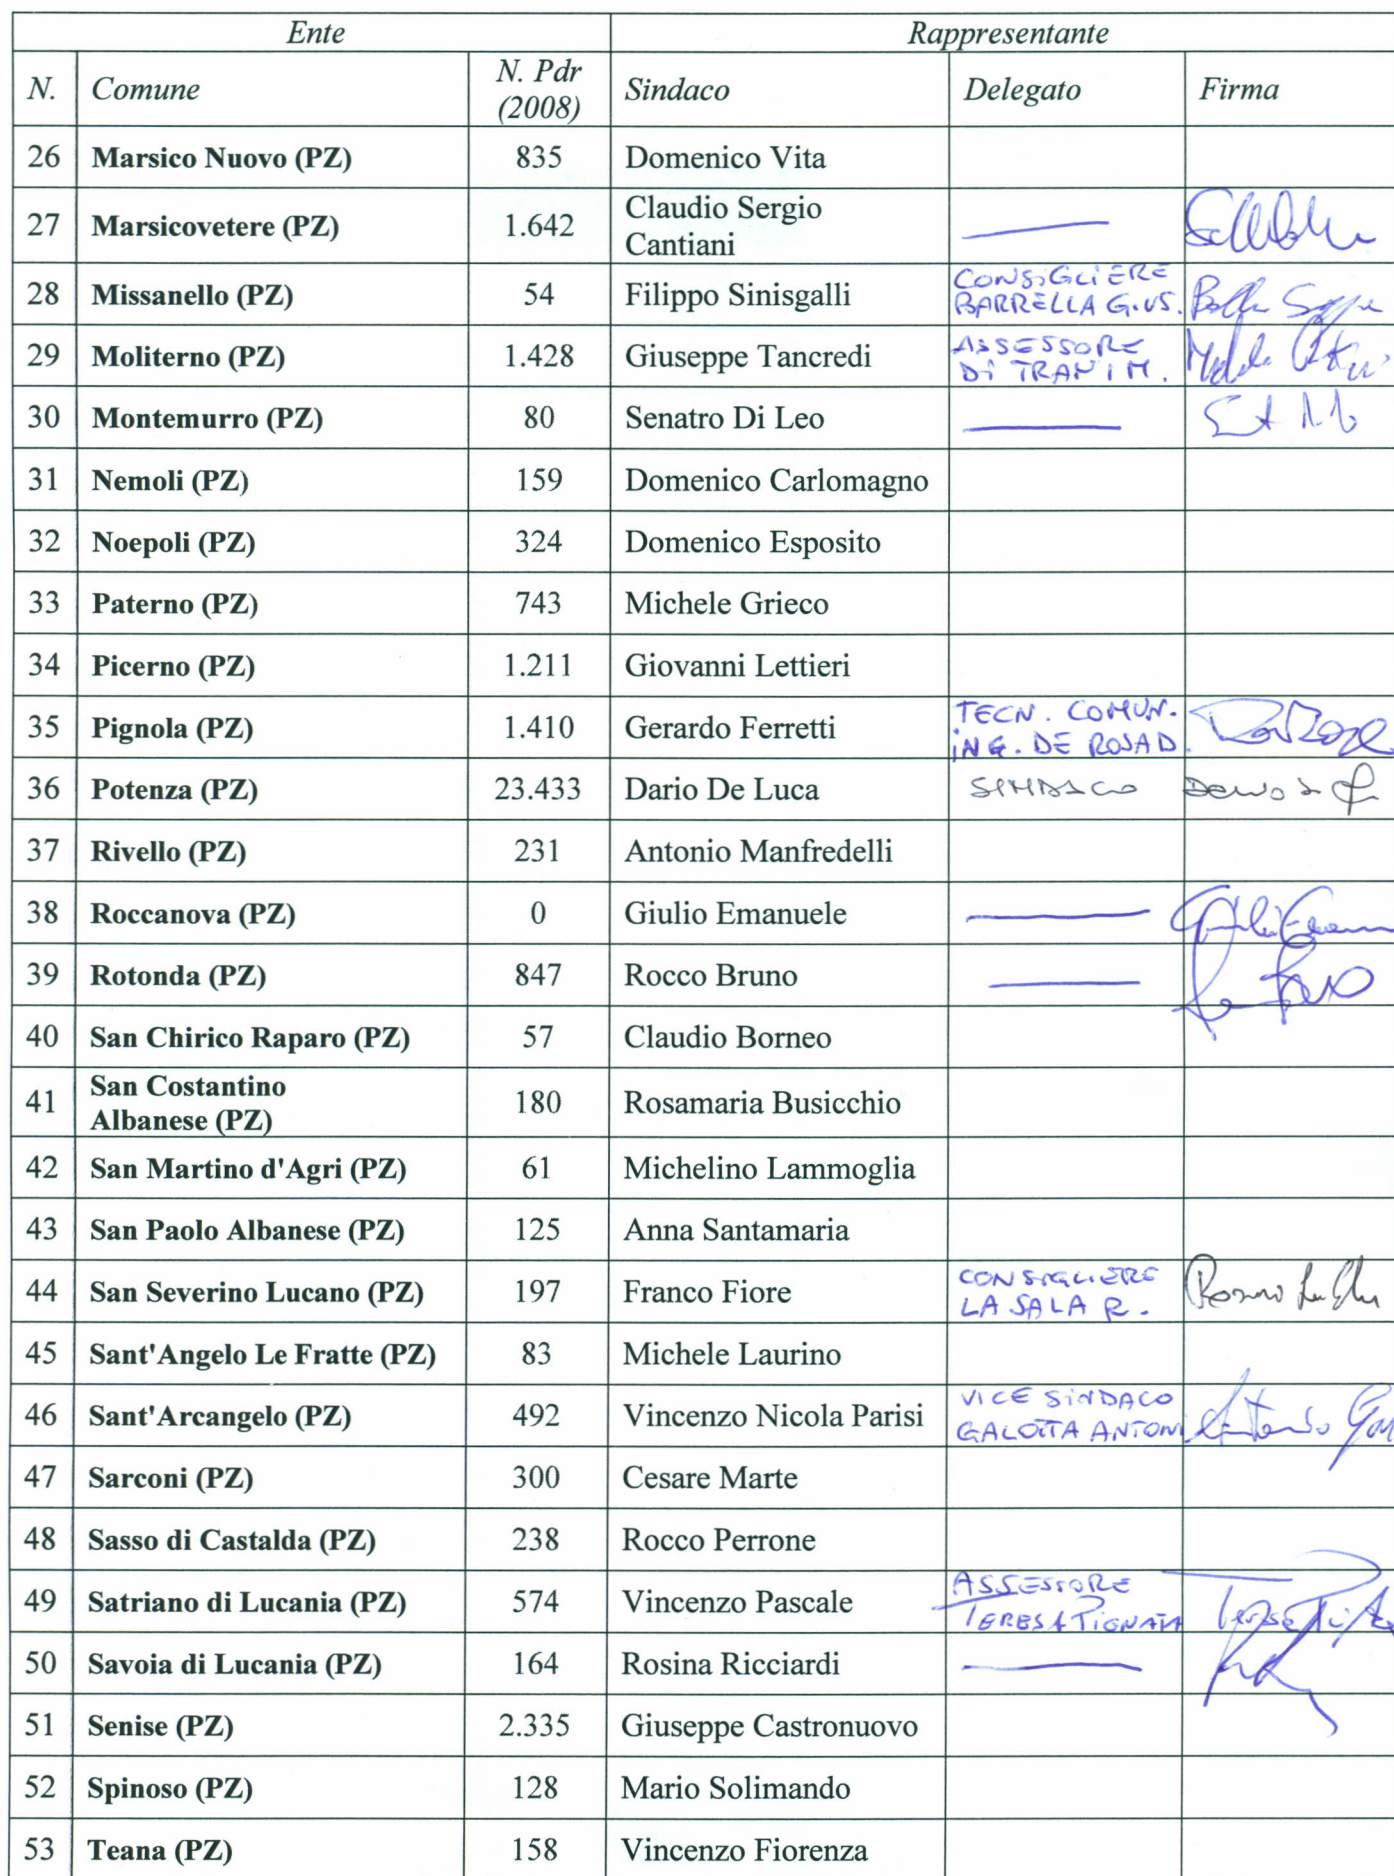 Ente Rappresentante
N. Comune N. Pdr (2008) Sindaco Delegato Firma
26 Marsico Nuovo (PZ) 835 Domenico Vita
27 Marsicovetere (PZ) 1.642 Claudio Sergio Cantiani
28 Missanello (PZ) 54 Filippo Sinisgalli CONSIGLIERE BARRELLA GIUS.
29 Moliterno (PZ) 1.428 Giuseppe Tancredi ASSESSORE DI TRANI M.
30 Montemurro (PZ) 80 Senatro Di Leo
31 Nemoli (PZ) 159 Domenico Carlomagno
32 Noepoli (PZ) 324 Domenico Esposito
33 Paterno (PZ) 743 Michele Grieco
34 Picerno (PZ) 1.211 Giovanni Lettieri
35 Pignola (PZ) 1.410 Gerardo Ferretti TECN. COMUN. ING. DE ROSA D.
36 Potenza (PZ) 23.433 Dario De Luca SINDACO
37 Rivello (PZ) 231 Antonio Manfredelli
38 Roccanova (PZ) 0 Giulio Emanuele
39 Rotonda (PZ) 847 Rocco Bruno
40 San Chirico Raparo (PZ) 57 Claudio Borneo
41 San Costantino Albanese (PZ) 180 Rosamaria Busicchio
42 San Martino d'Agri (PZ) 61 Michelino Lammoglia
43 San Paolo Albanese (PZ) 125 Anna Santamaria
44 San Severino Lucano (PZ) 197 Franco Fiore CONSIGLIERE LA SALA R.
45 Sant'Angelo Le Fratte (PZ) 83 Michele Laurino
46 Sant'Arcangelo (PZ) 492 Vincenzo Nicola Parisi VICE SINDACO GALOTTA ANTONI
47 Sarconi (PZ) 300 Cesare Marte
48 Sasso di Castalda (PZ) 238 Rocco Perrone
49 Satriano di Lucania (PZ) 574 Vincenzo Pascale ASSESSORE TERESA PIGNATA
50 Savoia di Lucania (PZ) 164 Rosina Ricciardi
51 Senise (PZ) 2.335 Giuseppe Castronuovo
52 Spinoso (PZ) 128 Mario Solimando
53 Teana (PZ) 158 Vincenzo Fiorenza